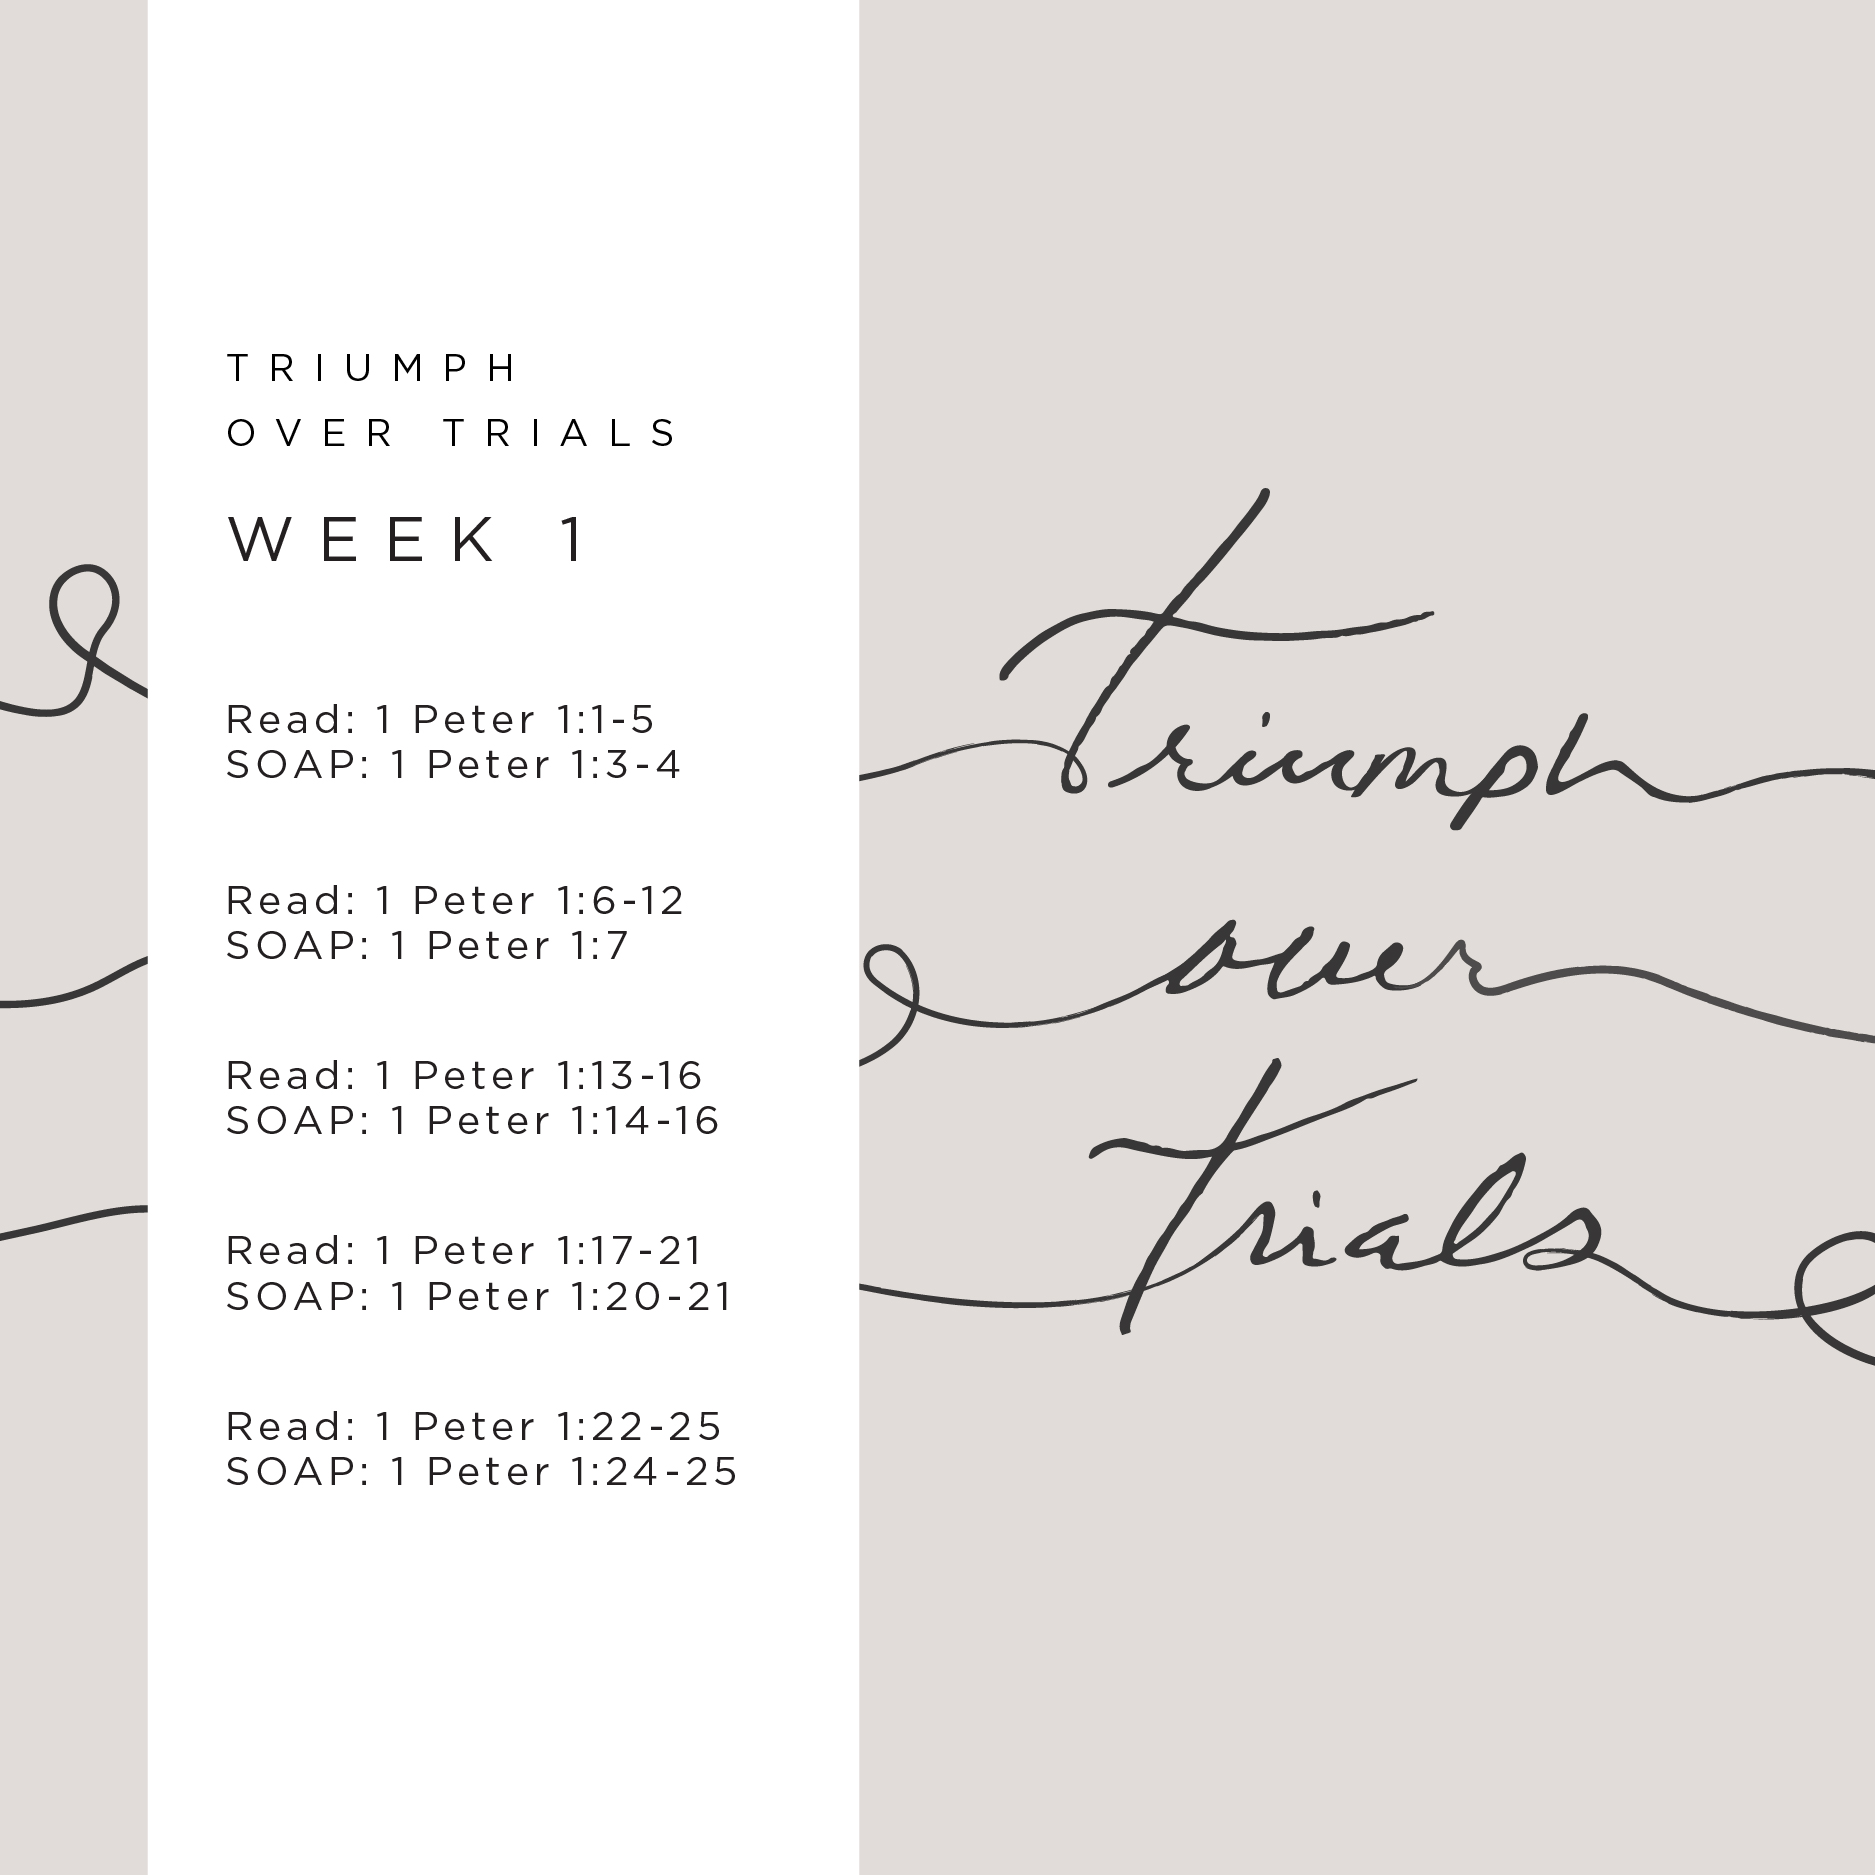 TRIUMPH
OVER TRIALS
WEEK 1
Read: 1 Peter 1:1-5
SOAP: 1 Peter 1:3-4
Read: 1 Peter 1:6-12
SOAP: 1 Peter 1:7
Read: 1 Peter 1:13-16
SOAP: 1 Peter 1:14-16
Read: 1 Peter 1:17-21
SOAP: 1 Peter 1:20-21
Read: 1 Peter 1:22-25
SOAP: 1 Peter 1:24-25
Triumph
over
Trials